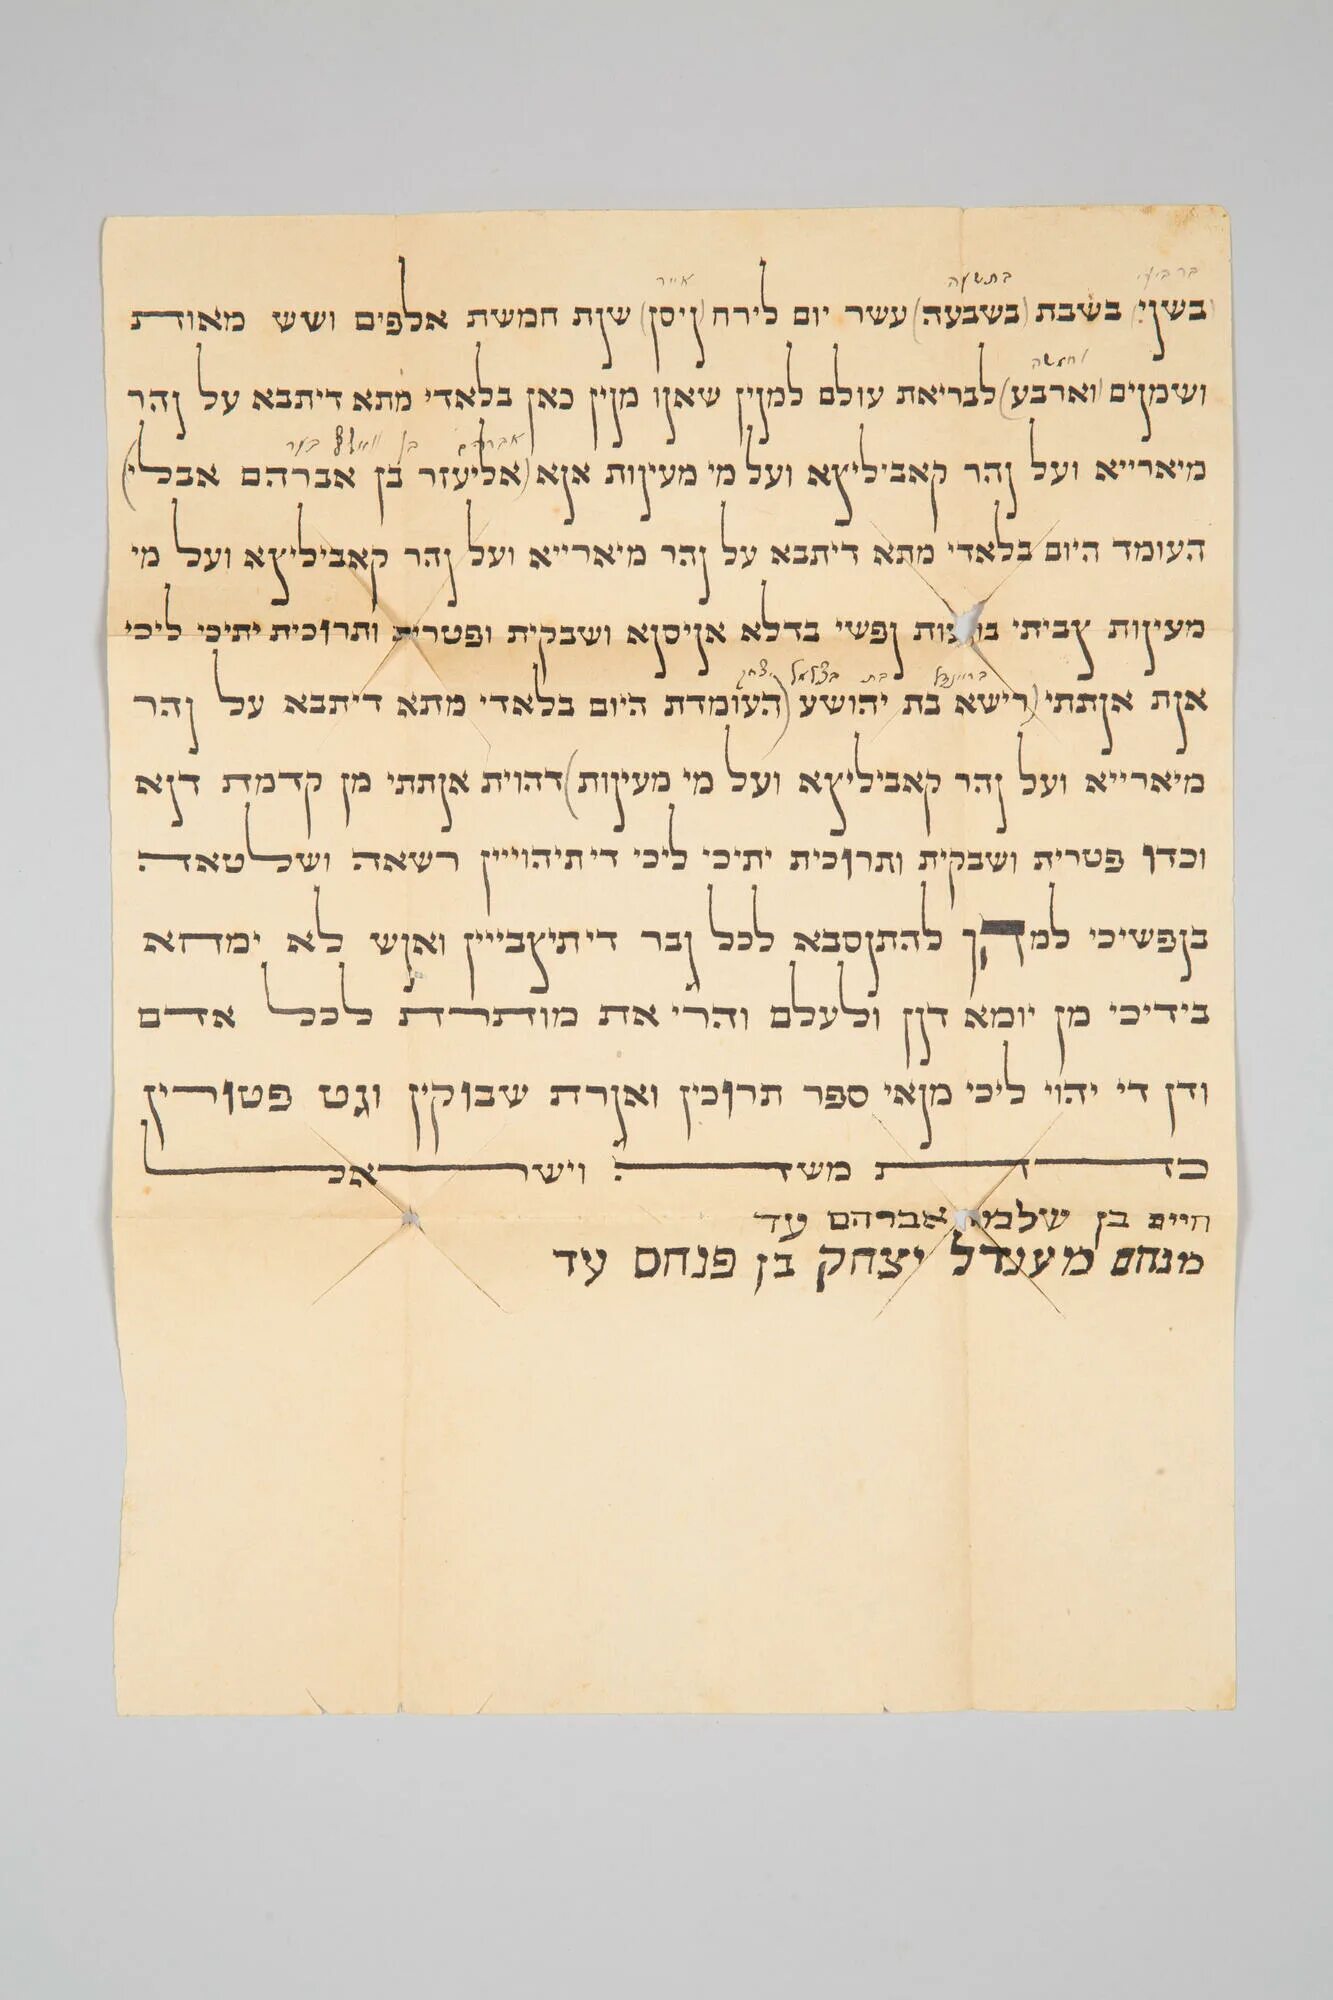 ברביעי בתשעה אייר
(בשני) בשבת (בשבעה) עשר יום לירח (ניסן) שנת חמשת אלפים ושש מאות
וחמשה
ושמנים (וארבע) לבריאת עולם למנין שאנו מנין כאן בלאדי מתא דיתבא על נהר
אברהם בן וואלף בער
מיארייא ועל נהר קאביליצא ועל מי מעינות אנא (אליעזר בן אברהם אבלי)
העומד היום בלאדי מתא דיתבא על נהר מיארייא ועל נהר קאביליצא ועל מי
מעינות צביתי נפשי בדלא אניסנא ושבקית ופטרית ותרוכית יתיכי ליכי
בריינדל בת בצלאל יצחק
אנת אנתתי (רישא בת יהושע (העומדת היום בלאדי מתא דיתבא על נהר
מיארייא ועל נהר קאביליצא ועל מי מעינות) דהוית אנתתי מן קדמת דנא
וכדו פטרית ושבקית ותרוכית יתיכי ליכי דיתיהוייין רשאה ושלטאה
בנפשיכי למהך להתנסבא לכל גבר דיתיצבייין ואנש לא ימחא
בידיכי מן יומא דנן ולעלם והרי את מותרת לכל אדם
ודן די יהוי ליכי מנאי ספר תרוכין ואגרת שבוקין וגט פטורין
כדת משה וישראל
חיים בן שלמה אברהם עד
מנחם מענדל יצחק בן פנחס עד